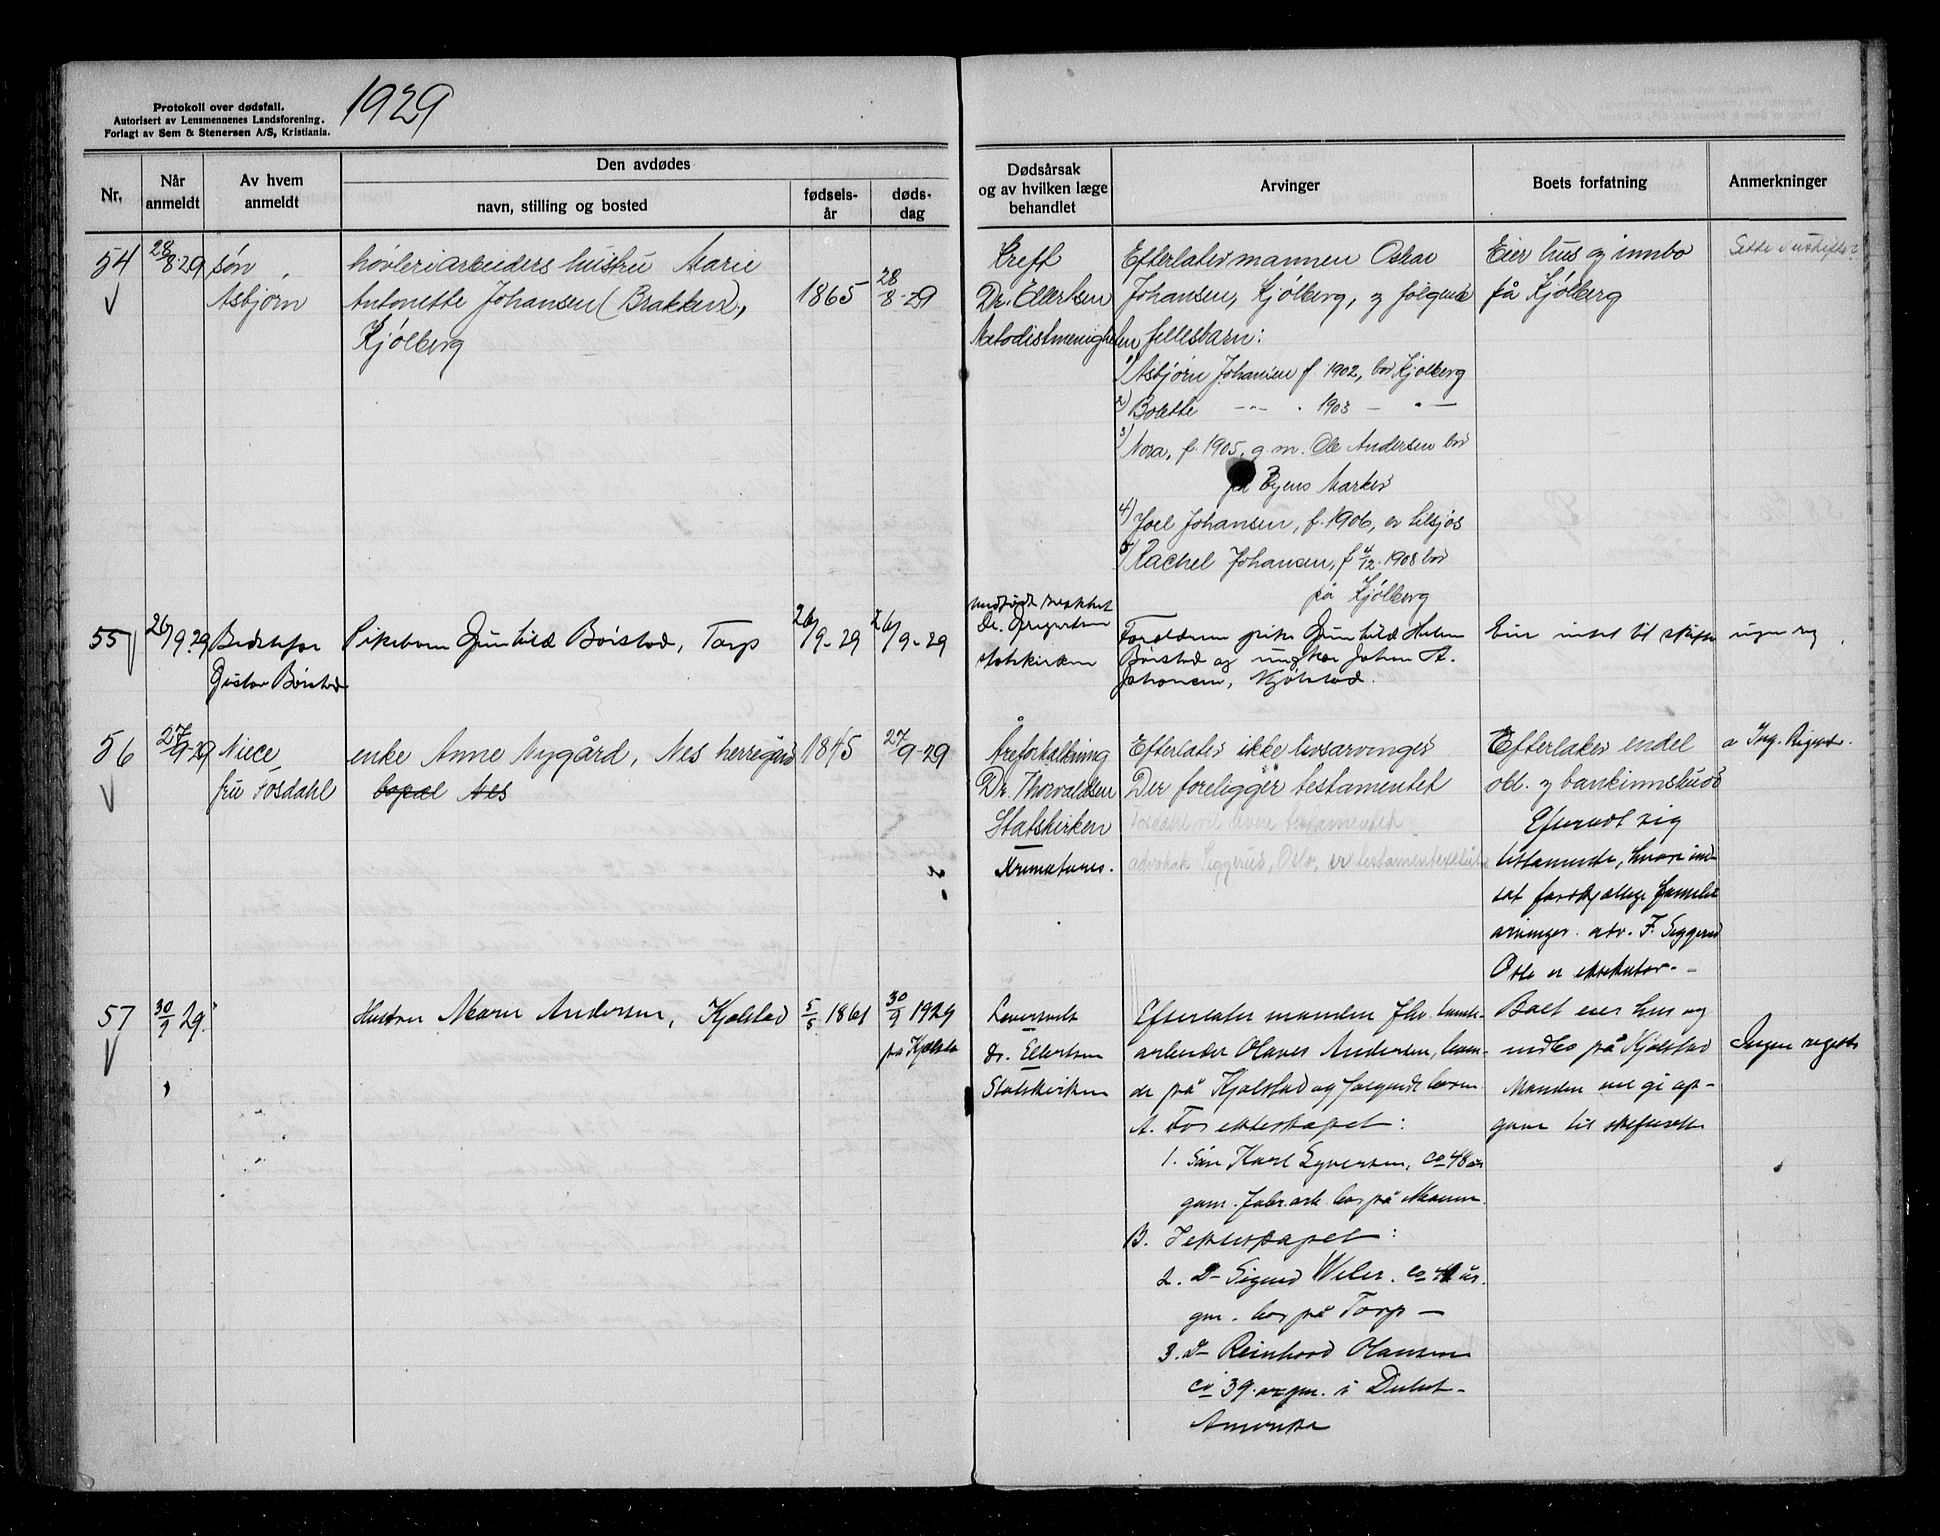 Protokoll over dødsfall.
Autorisert av Lensmennenes Landsforening.
Forlagt av Sem & Stenersen A/S, Kristiania.
1929
Nr.
Når anmeldt
Av hvem anmeldt
Den avdødes
navn, stilling og bosted
fødsels-år
døds-dag
Dødsårsak og av hvilken læge behandlet
Arvinger
Boets forfatning
Anmerkninger
54
28/8 29
søn
Asbjørn
høvleriarbeiders hustru Marie
Antonette Johansen (Brakken),
Kjølberg
1865
28/8-29
Kreft
Dr. Ellertsen
Metodistmenigheten
Efterlater mannen Oskar
Johansen, Kjølberg, og følgende
fellesbarn:
1) Asbjørn Johansen f. 1902, bor Kjølberg
2) Bolette - " - . 1903 - " -
3) Nora, f. 1905, g. m. Ole Andersen bor
på Byens Marker
4) Joel Johansen, f. 1906, er tilsjøs
5) Rachel Johansen, f 4/12. 1908 bor
på Kjølberg
Eier hus og innbo
på Kjølberg
55
26/9.29
Bedstefar
Gustav Böistad
Pikebarn Gunhild Böistad, Torp
26/9-29
26/9-29
Dr. Gregersen
statskirken
Foreldrene pike Gunhild Helene
Böistad og ungkar Johan A.
Johansen, Kjølstad.
Eier intet til skifte
56
27/9-29
Niece
fru Fosdahl
enke Anne Nygård, Nes herregård
bopæl Nes
1845
27/9-29
Åreforkalkning
Dr. Thorvaldsen
Statskirken
Efterlater ikke livsarvinger
Der foreligger testamentet
Fosdahl vil levere testamentet
advokat Seggerud, Oslo, er
Efterlater endel
obl. og bankinnskudd
Efterlatt sig
testamente, hvori ind-
sat forskjellige familie
arvinger. adv. F. Seggerud
Oslo er eksekutor. -
57
30/9 29.
Hustru Marie Andersen, Kjølstad
5/5 1861
30/9 1929
på Kjølstad
dr. Ellertsen
Statskirken
Efterlater manden fhv. tomt-
arbeider Olaves Andersen, boen-
de på Kjølstad og følgende barn
A. For ekteskapet:
1. Søn Karl Syversen, ca 48 år
gam. fabr.arb. bor på Moum
B. I ekteskapet:
2. D- Sigurd Wiler. ca 41 år.
gm. bor på Torp -
3. D- Reinhard Olausen
ca 39. år gm. i Dulut-
Amerika
Boet eier hus og
indbo på Kjølstad
Manden vil gi op-
gave til skifterett
Ingen